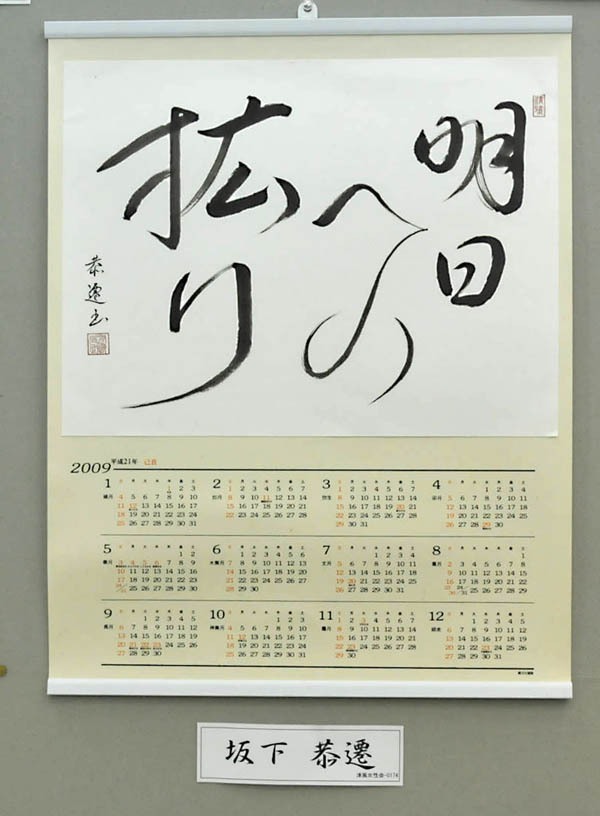 明日
への
拡り
恭遷書
2009 平成21年 己丑
1
1 2 3
4 5 6 7 8 9 10
11 12 13 14 15 16 17
18 19 20 21 22 23 24
25 26 27 28 29 30 31
2
1 2 3 4 5 6 7
8 9 10 11 12 13 14
15 16 17 18 19 20 21
22 23 24 25 26 27 28
3
1 2 3 4 5 6 7
8 9 10 11 12 13 14
15 16 17 18 19 20 21
22 23 24 25 26 27 28
29 30 31
4
1 2 3 4
5 6 7 8 9 10 11
12 13 14 15 16 17 18
19 20 21 22 23 24 25
26 27 28 29 30
5
1 2
3 4 5 6 7 8 9
10 11 12 13 14 15 16
17 18 19 20 21 22 23
24/31 25 26 27 28 29 30
6
1 2 3 4 5 6
7 8 9 10 11 12 13
14 15 16 17 18 19 20
21 22 23 24 25 26 27
28 29 30
7
1 2 3 4
5 6 7 8 9 10 11
12 13 14 15 16 17 18
19 20 21 22 23 24 25
26 27 28 29 30 31
8
1
2 3 4 5 6 7 8
9 10 11 12 13 14 15
16 17 18 19 20 21 22
23/30 24/31 25 26 27 28 29
9
1 2 3 4 5
6 7 8 9 10 11 12
13 14 15 16 17 18 19
20 21 22 23 24 25 26
27 28 29 30
10
1 2 3
4 5 6 7 8 9 10
11 12 13 14 15 16 17
18 19 20 21 22 23 24
25 26 27 28 29 30 31
11
1 2 3 4 5 6 7
8 9 10 11 12 13 14
15 16 17 18 19 20 21
22 23 24 25 26 27 28
29 30
12
1 2 3 4 5
6 7 8 9 10 11 12
13 14 15 16 17 18 19
20 21 22 23 24 25 26
27 28 29 30 31
坂下 恭遷